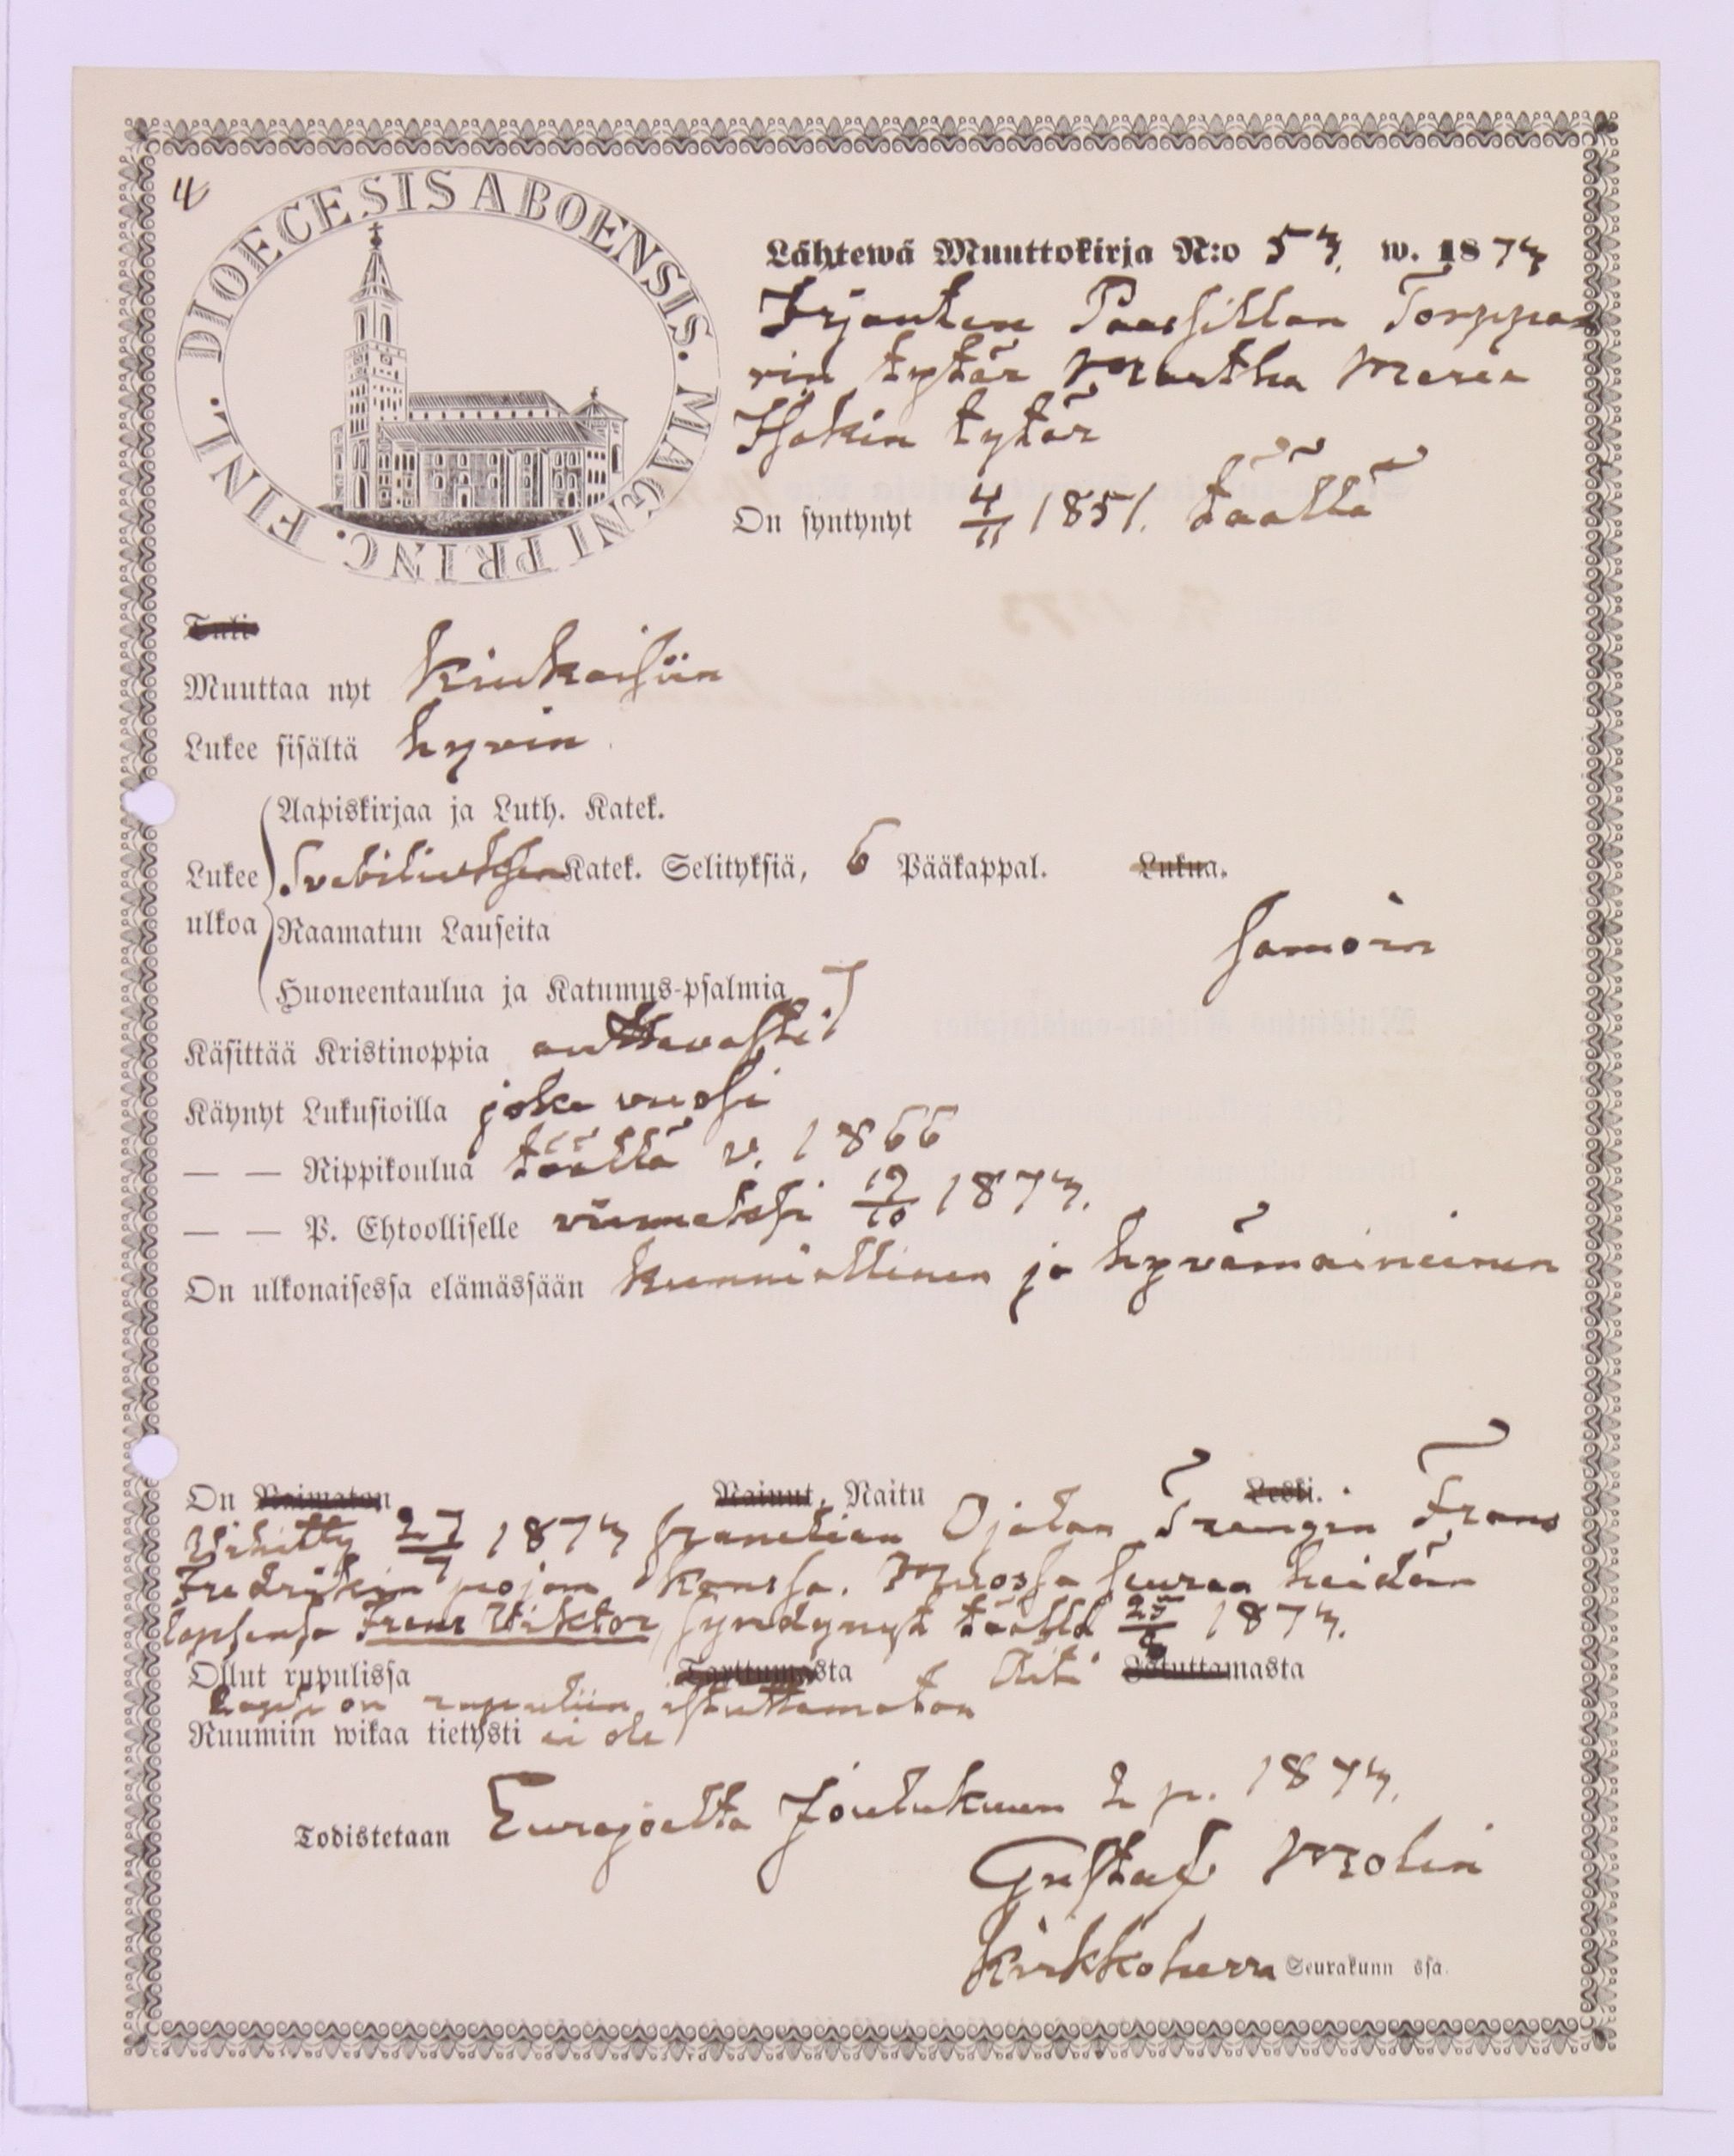 4
DIOECESIS ABOENSIS. MAGNI PRINC. FINL.
Lähtewä Muuttokirja N:o 53. w. 1873
Irjanten Paassillan Torppa
rin tytär Martha Maria
Isakin tytär
On syntynyt 4/11 1851. täällä
Tuli
Muuttaa nyt Kiukaisiin
Lukee sisältä hyvin
Aapiskirjaa ja Luth. Katek.
Lukee Svebiliuksen Katek. Selityksiä, 6 Pääkappal. Lukua.
ulkoa Raamatun Lauseita samoin
Huoneentaulua ja Katumus-psalmia
Käsittää Kristinoppia auttavasti
Käynyt Lukusioilla joka vuosi
— — Rippikoulua täällä v. 1866
— — P. Ehtoolliselle viimeksi 19/10 1873.
On ulkonaisessa elämässään kunniallinen ja hyvämaineinen
On Naimaton Nainut, Naitu Leski.
Vihitty 27/7 1873 Ojalan Trengin Frans
Fredrikin pojan kanssa. Muassa seuraa heidän
lapsensa Frans Viktor, syndynyt täällä 25/8 1873.
Ollut rupulissa Tarttumasta Äiti Istuttamasta
Lapsi on rupuliin istuttamaton
Ruumiin wikaa tietysti ei ole
Todistetaan Eurajoelta Joulukuun 2 p. 1873.
Gustaf Molin
Kirkkoherra Seurakunn ssa.